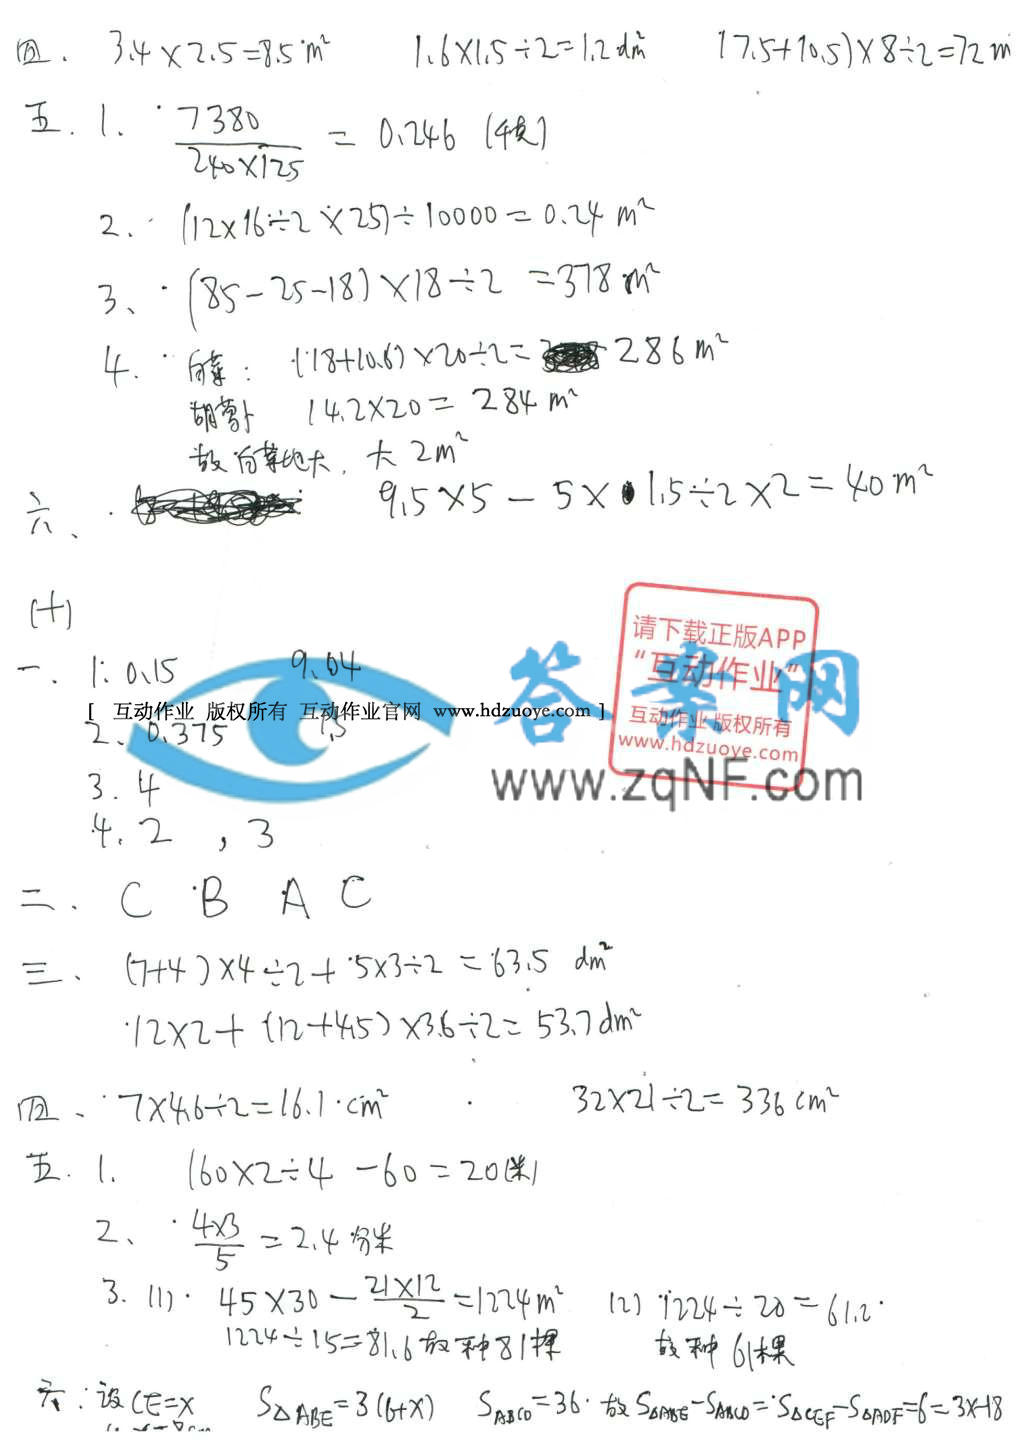 四. 3.4×2.5=8.5m² 1.6×1.5÷2=1.2dm² (7.5+10.5)×8÷2=72m
五. 1. 7380/240×125 = 0.246 (千克)
2. (12×16÷2×25)÷10000=0.24 m²
3、 (85-25-18)×18÷2 =378m²
4. 白菜: (18+10.6)×20÷2= 286m²
胡萝卜 14.2×20= 284m²
故白菜地大, 大2m²
六、 9.5×5-5×1.5÷2×2=40m²
(十)
一. 1: 0.15 9.04
[ 互动作业 版权所有 互动作业官网 www.hdzuoye.com ]
2、0.375 1.5
3. 4
4. 2 , 3
答案网
www.zqNF.com
请下载正版APP
“互动作业”
互动作业 版权所有
www.hdzuoye.com
二. C B A C
三. (7+4)×4÷2+5×3÷2=63.5 dm²
12×2+(12+4.5)×3.6÷2=53.7dm²
四、 7×4.6÷2=16.1cm² 32×21÷2=336cm²
五. 1. 160×2÷4-60=20(米)
2、 4×3/5 =2.4分米
3. (1) 45×30-21×12/2=1224m² (2) 1224÷20=61.2
1224÷15=81.6 故种81棵 故种61棵
六: 设CE=x S△ABE=3(6+x) SABCD=36 故S△ABE-SABCD=S△CEF-S△ADF=6=3x-18